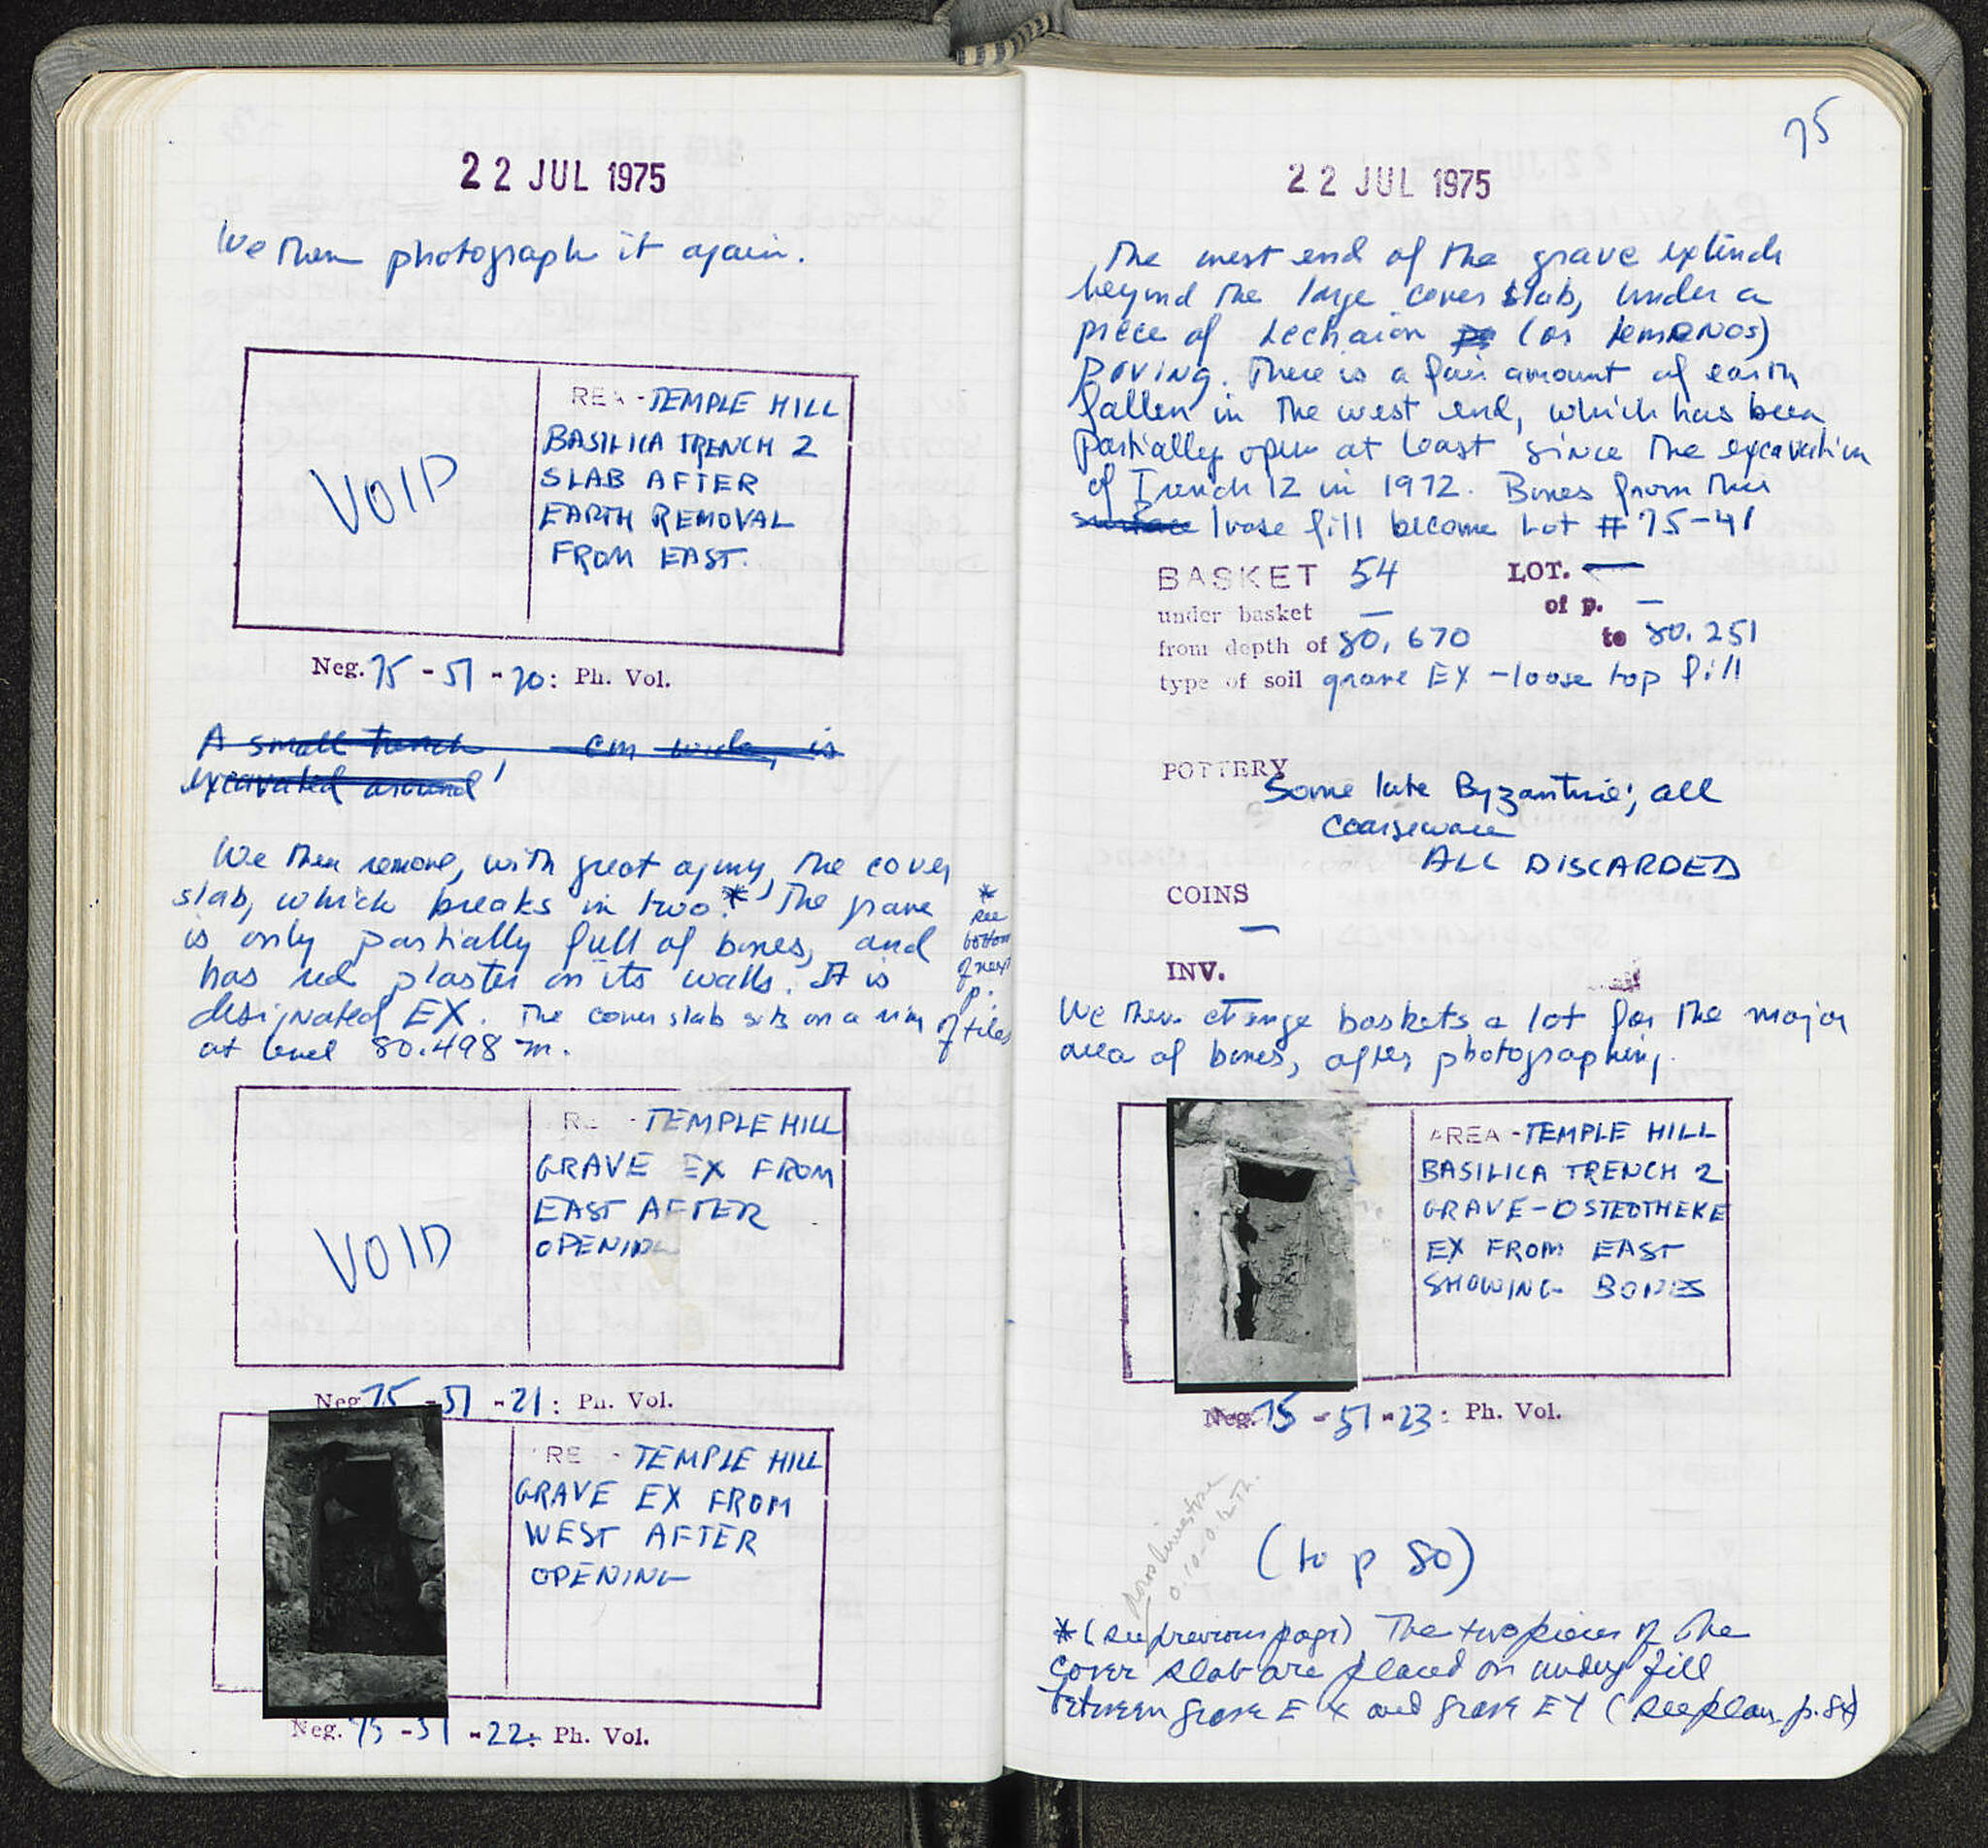 22 JUL 1975
We then photograph it again.
VOID
REA - TEMPLE HILL
BASILICA TRENCH 2
SLAB AFTER
EARTH REMOVAL
FROM EAST.
Neg. 75 - 51 - 20: Ph. Vol.
A small trench, — cm wide, is
excavated around
We then remove, with great agony, the cover
slab, which breaks in two.* The grave
is only partially full of bones, and
has red plaster on its walls. It is
designated EX. The cover slab sits on a rim of tiles
at level 80.498 m.
*
see
bottom
of next
p.
RE - TEMPLE HILL
GRAVE EX FROM
EAST AFTER
OPENING
VOID
Neg 75 - 51 - 21: Ph. Vol.
RE - TEMPLE HILL
GRAVE EX FROM
WEST AFTER
OPENING
Neg. 75 - 51 - 22: Ph. Vol.
75
22 JUL 1975
The west end of the grave extends
beyond the large cover slab, under a
piece of Lechaion (or temenos)
paving. There is a fair amount of earth
fallen in the west end, which has been
partially open at least since the excavation
of Trench 12 in 1972. Bones from this
surface loose fill become Lot # 75-41
BASKET 54 LOT. —
under basket — of p. —
from depth of 80.670 to 80.251
type of soil grave EX - loose top fill
POTTERY
Some late Byzantine; all
coarseware
ALL DISCARDED
COINS
—
INV.
We then change baskets a lot for the major
area of bones, after photographing.
AREA - TEMPLE HILL
BASILICA TRENCH 2
GRAVE-OSTEOTHEKE
EX FROM EAST
SHOWING BONES
Neg. 75 - 51 - 23: Ph. Vol.
Poros limestone
0.10-0.12 Th.
(to p 80)
*(see previous page) The two pieces of the
cover slab are placed on fill
between grave EX and grave EY (see plan p.84)